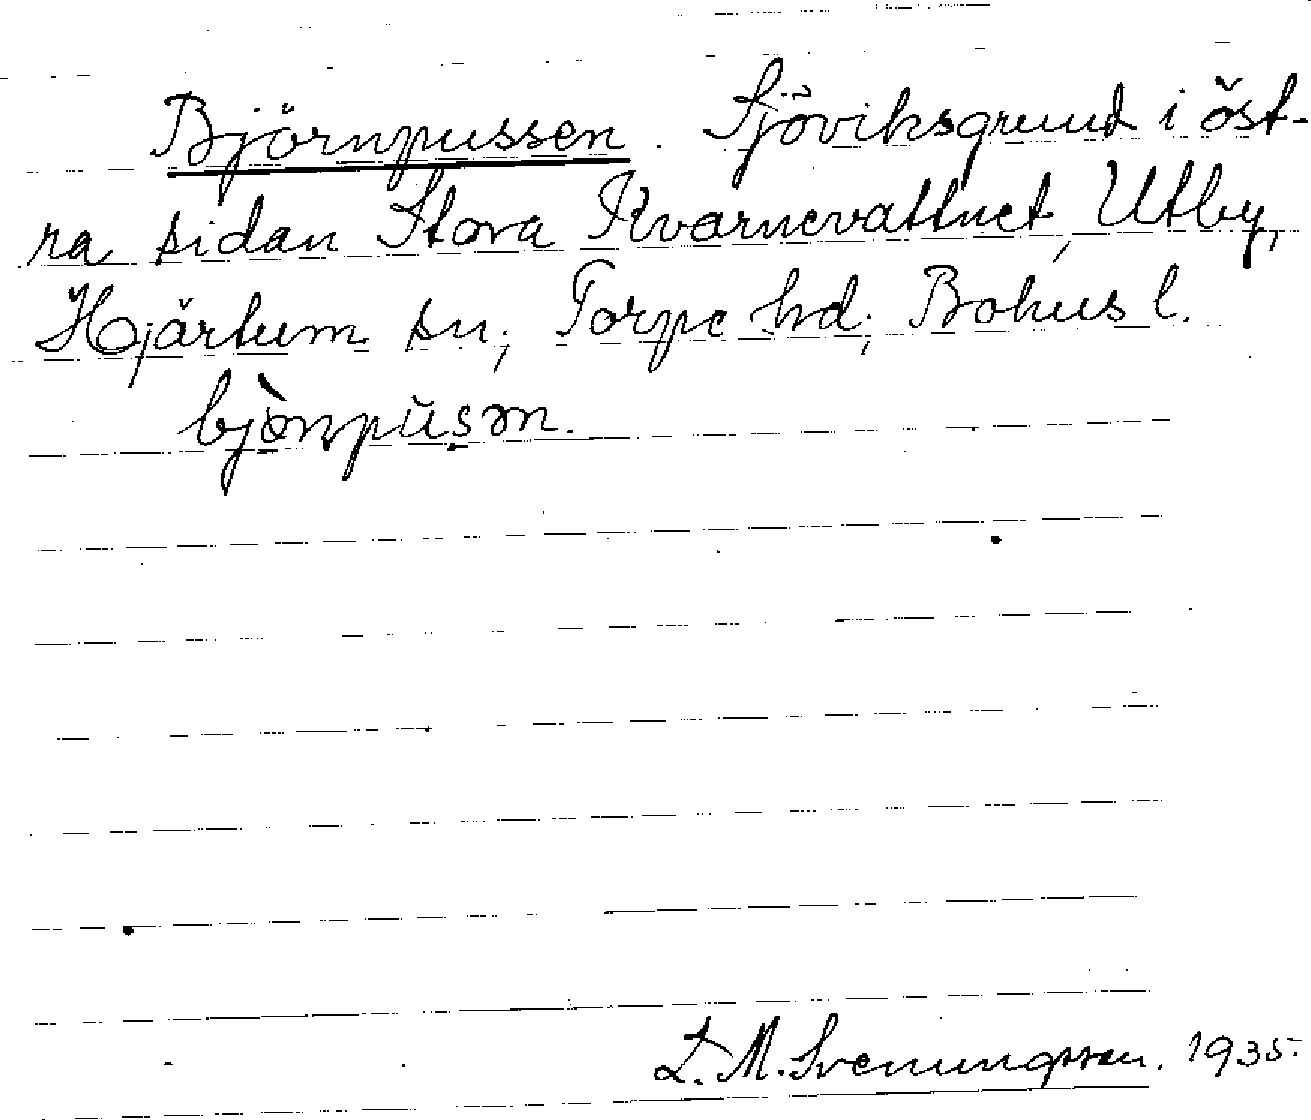 Björnpussen. Sjöviksgrund i öst-
ra sidan Stora Kvarnevattnet, Utby,
Hjärtum sn; Torpe hd; Bohus l.
bjö̀npusən.
L. M. Svenungsson. 1935.